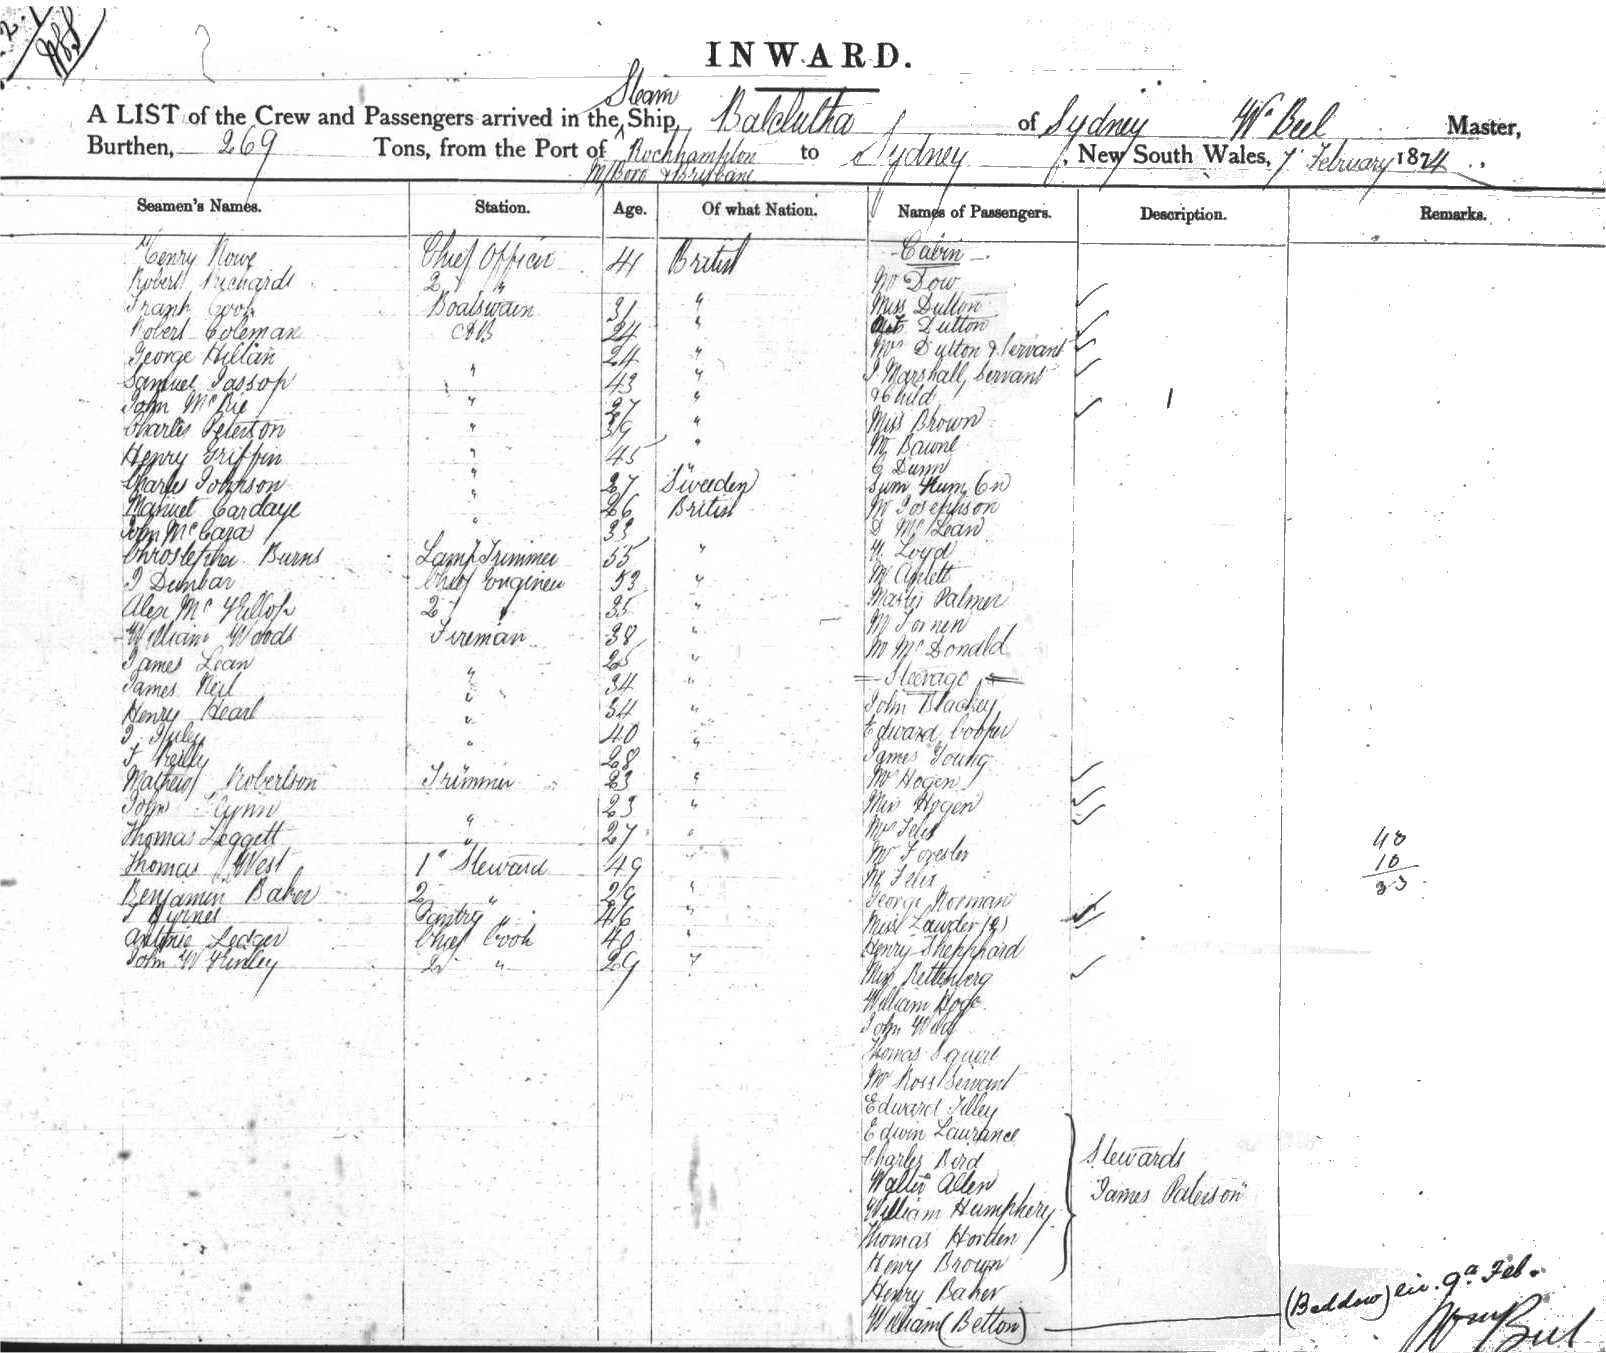 INWARD.
Steam
A LIST of the Crew and Passengers arrived in the Ship Balclutha of Sydney Wm Beel Master,
Burthen, 269 Tons, from the Port of Rockhampton to Sydney, New South Wales, 7 February 1874
M/Boro & Brisbane
Seamen's Names. Station. Age. Of what Nation. Names of Passengers. Description. Remarks.
Henry Rowe Chief Officer 41 British
Robert Richards 2 "
Frank Cook Boatswain 31 "
Robert Coleman AB 24 "
George Hillan 24 "
Samuel Jassop " 43 "
John McRie " 27 "
Charles Peterson " 39 "
Henry Griffin " 45 "
Charles Johnson " 27 Sweeden
Manuel Cardaye " 26 British
John McCaza " 33
Christopher Burns Lamp Trimmer 55 "
J Dunbar Chief Engineer 53 "
Alex McKillop 2 " 35 "
William Woods Fireman 38 "
James Loan " 25 "
James Neil " 34 "
Henry Hearl " 34 "
40 "
F Reilly 28
Mathew Robertson Trimmer 23 "
John Flynn 23 "
Thomas Leggett " 27 "
Thomas West 1st Steward 49 "
Benjamin Baker 2 " 29 "
J Byrnes Pantry " 46 "
Antonio Ledger Chief Cook 40 "
John McKinley 2 " 29 "
Cabin
Mr Dow
Miss Dutton
Dutton
Mrs Dutton & Servant
J Marshall, Servant
& Child 1
Miss Brown
Mr Bawne
G Dunn
Sum Kum On
Mr Josephson
D McLean
W Loyd
Mr Aplett
Master Palmer
Mr
Mr McDonald
Steerage
John Blackey
Edward Cooper
James Young
Mr Hogen
Miss Hogen
Mrs Felix
Mr Forester
Mr Felix
George Norman
Miss Lawder (2)
Henry Sheppard
Miss Rettenberg
William Hope
John
Thomas Squire
Mr Ross Servant
Edward Tilley
Edwin Laurance
Charles Bird
Walter Allen
William Humphery
Thomas Horden
Henry Brown
Henry Baker
William (Betton)
Stewards
James Paterson
10
33
(Beddow) Feb.
Wm Beel